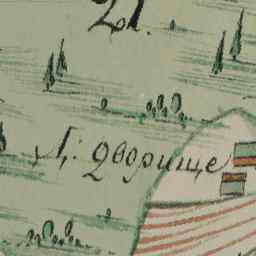 21.
Л: дворище